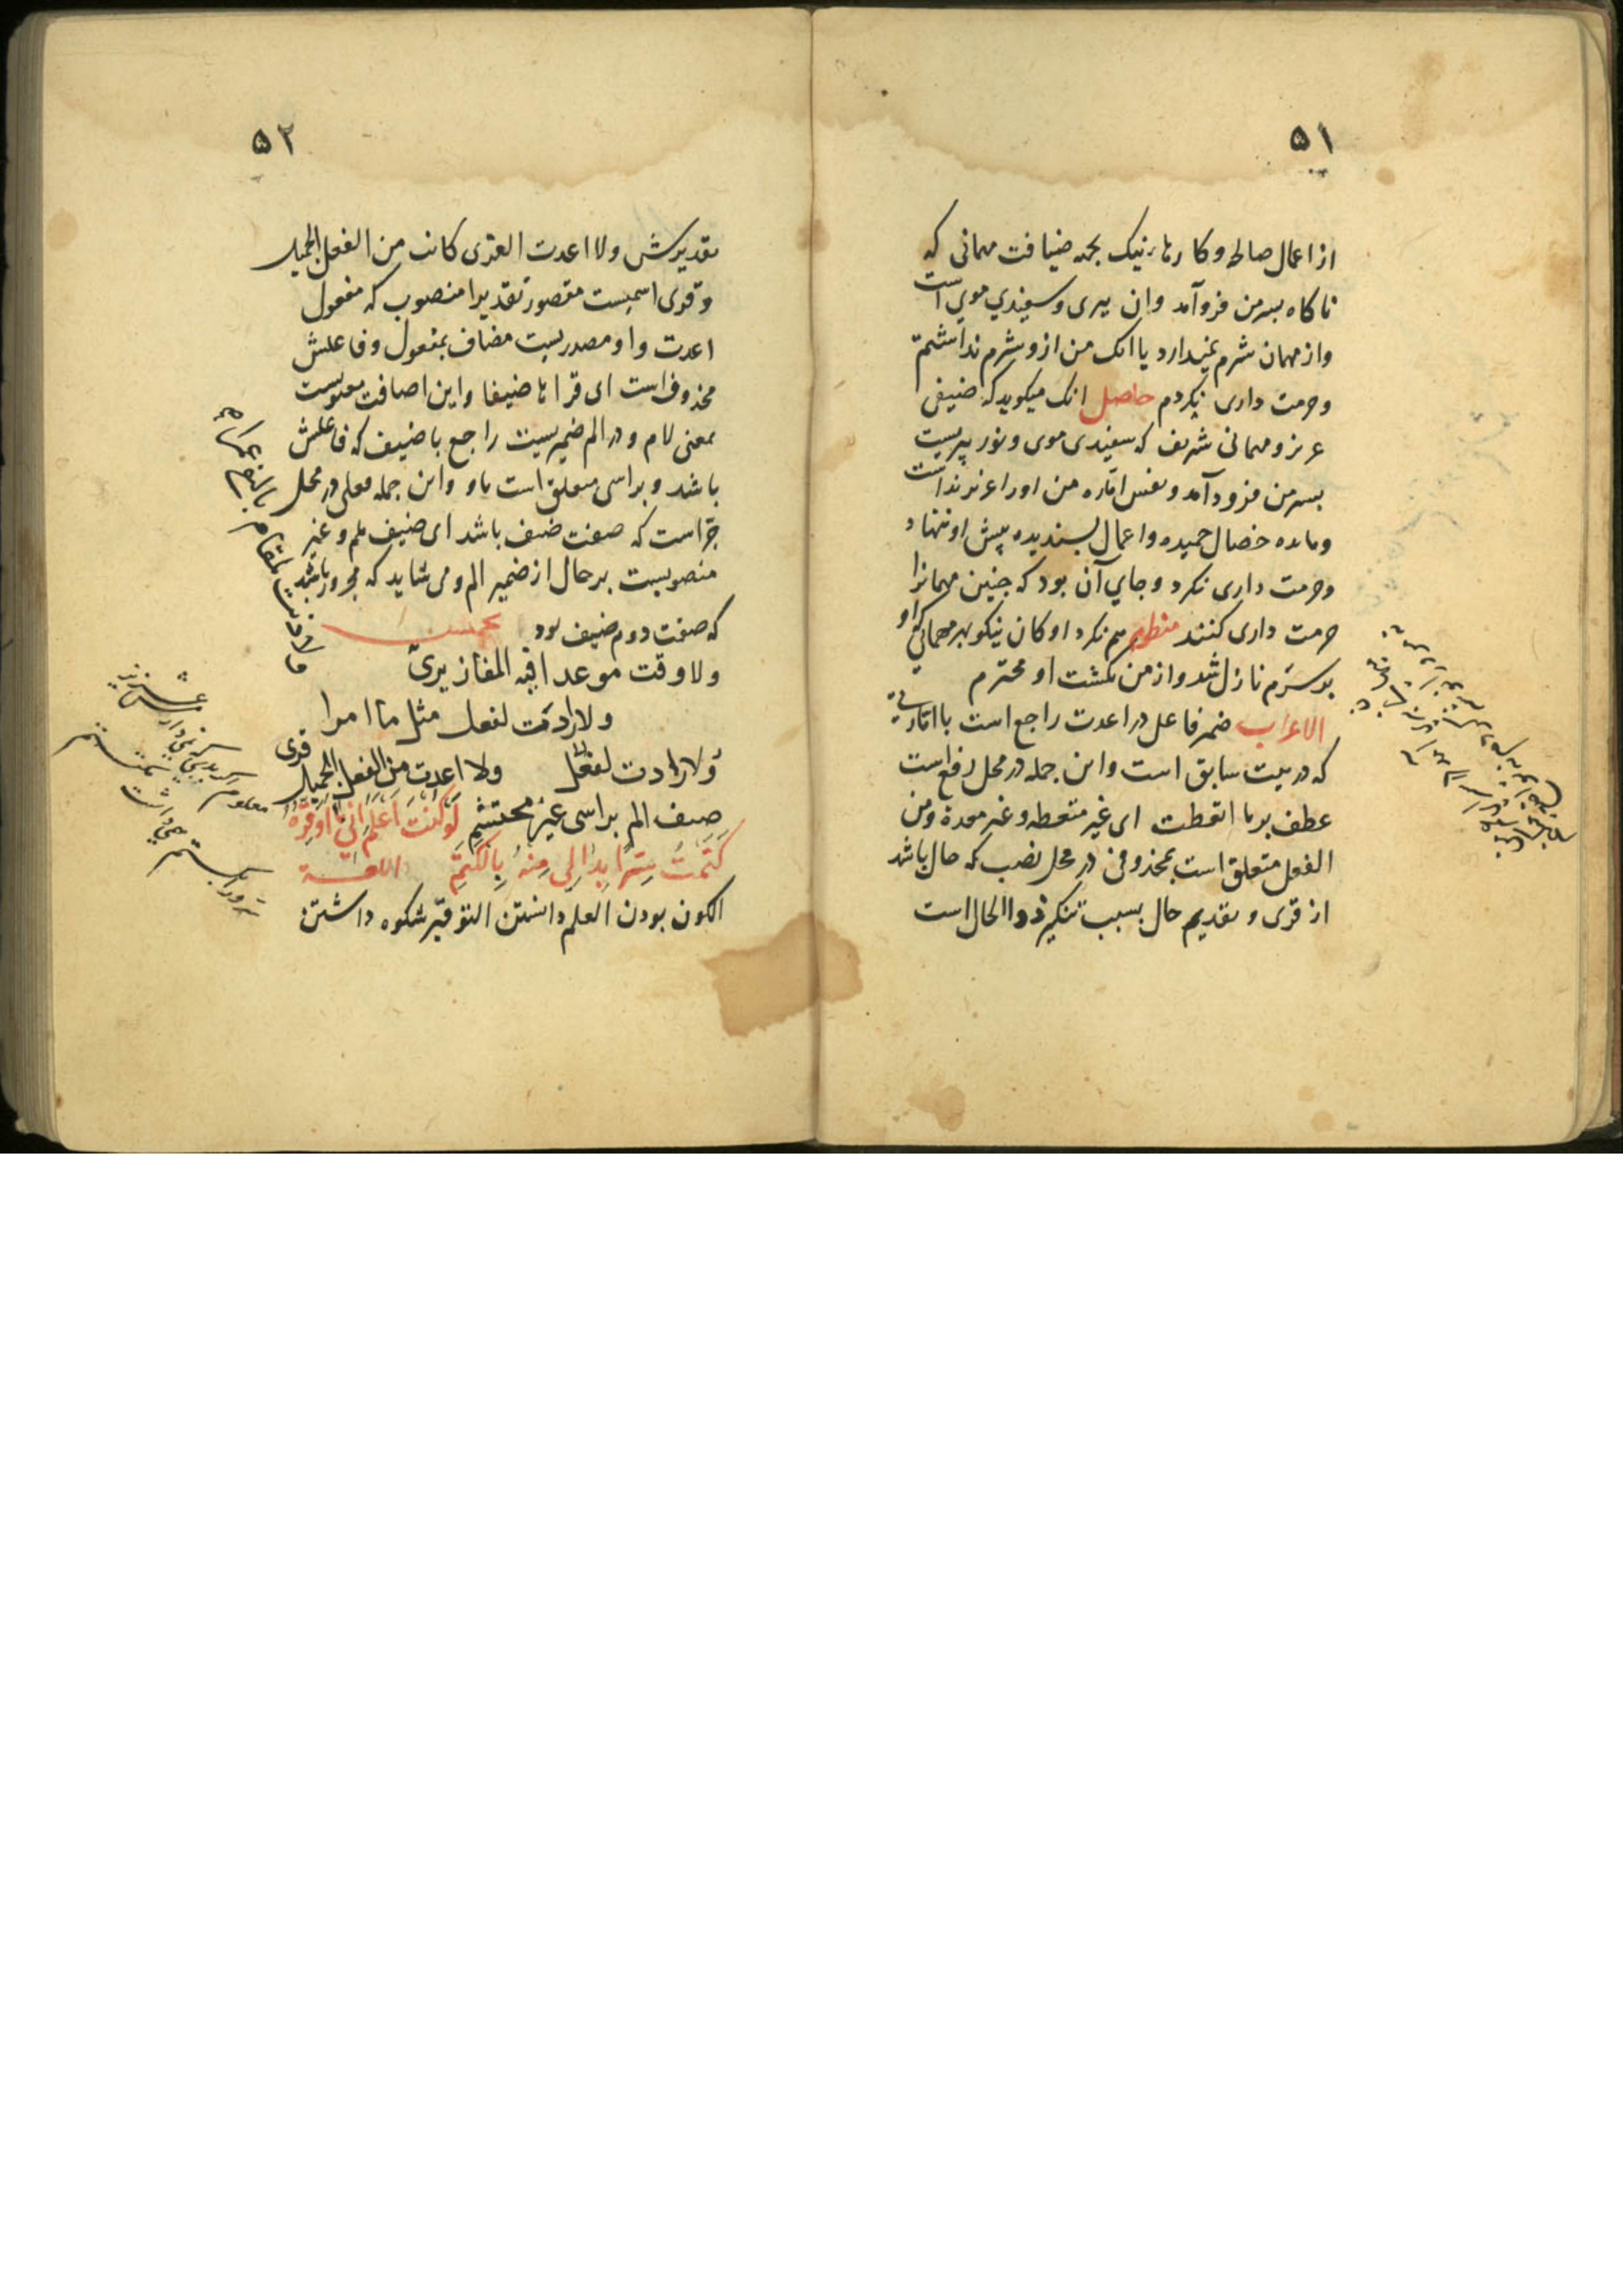 ۵۱
از اعمال صالح و کارهای نیک بجهه ضیافت مهمانی که
ناکاه بسر من فروآمد وان پیری و سفیدی موی است
واز مهمان شرم نمیدارد یا انک من ازو شرم نداشتم
وحرمت داری نکردم حاصل انک میکوید که ضیفی
عزیز و مهمانی شریف که سفیدی موی و نور پیریست
بسر من فرود آمد و نفس اماره من اورا عزیز نداشت
ومایده خصال حمیده و اعمال پسندیده پیش او ننهاد
وحرمت داری نکرد و جای آن بود که چنین مهمانرا
حرمت داری کنند منظوم هم نکرد او کان نیکو بهر مهمانی که او
بر سرم نازل شد و از من نکشت او محترم
الاعراب ضمیر فاعل در اعدت راجع است با اماره
که در بیت سابق است و این جمله در محل رفع است
عطف بر ما اتعظت ای غیر متعظه و غیر معدة و من
الفعل متعلق است بمحذوفی در محل نصب که حال باشد
از قری و تقدیم حال بسبب تنکیر ذوالحال است
۵۲
تقدیرش ولا اعدت القری کانت من الفعل الجمیل
وقری اسمیست مقصور تقدیرا منصوب که مفعول
اعدت و او مصدریست مضاف بمفعول و فاعلش
محذوف است ای قراها ضیفا و این اضافت معنویست
بمعنی لام و در الم ضمیریست راجع با ضیف که فاعلش
باشد و براسی متعلق است باو و این جمله فعلی در محل
جر است که صفت ضیف باشد ای ضیف ملم و غیر
منصوبست بر حال از ضمیر الم و می شاید که مجرور باشد
که صفت دوم ضیف بود تخمیس
ولا وقت موعدا فیه المفاز یری
ولا ارادت لفعل مثل ما امرا
ولا ارادت لفعل ولا اعدت من الفعل الجمیل قری
ضیف الم براسی غیر محتشم لَو کُنتُ اَعلَمُ اَنّی مَا اُوَقِّرُهُ
کَتَمتُ سِرًّا بَدَا لِی مِنهُ بِالکَتَمِ اللغة
الکون بودن العلم دانستن التوقیر شکوه داشتن